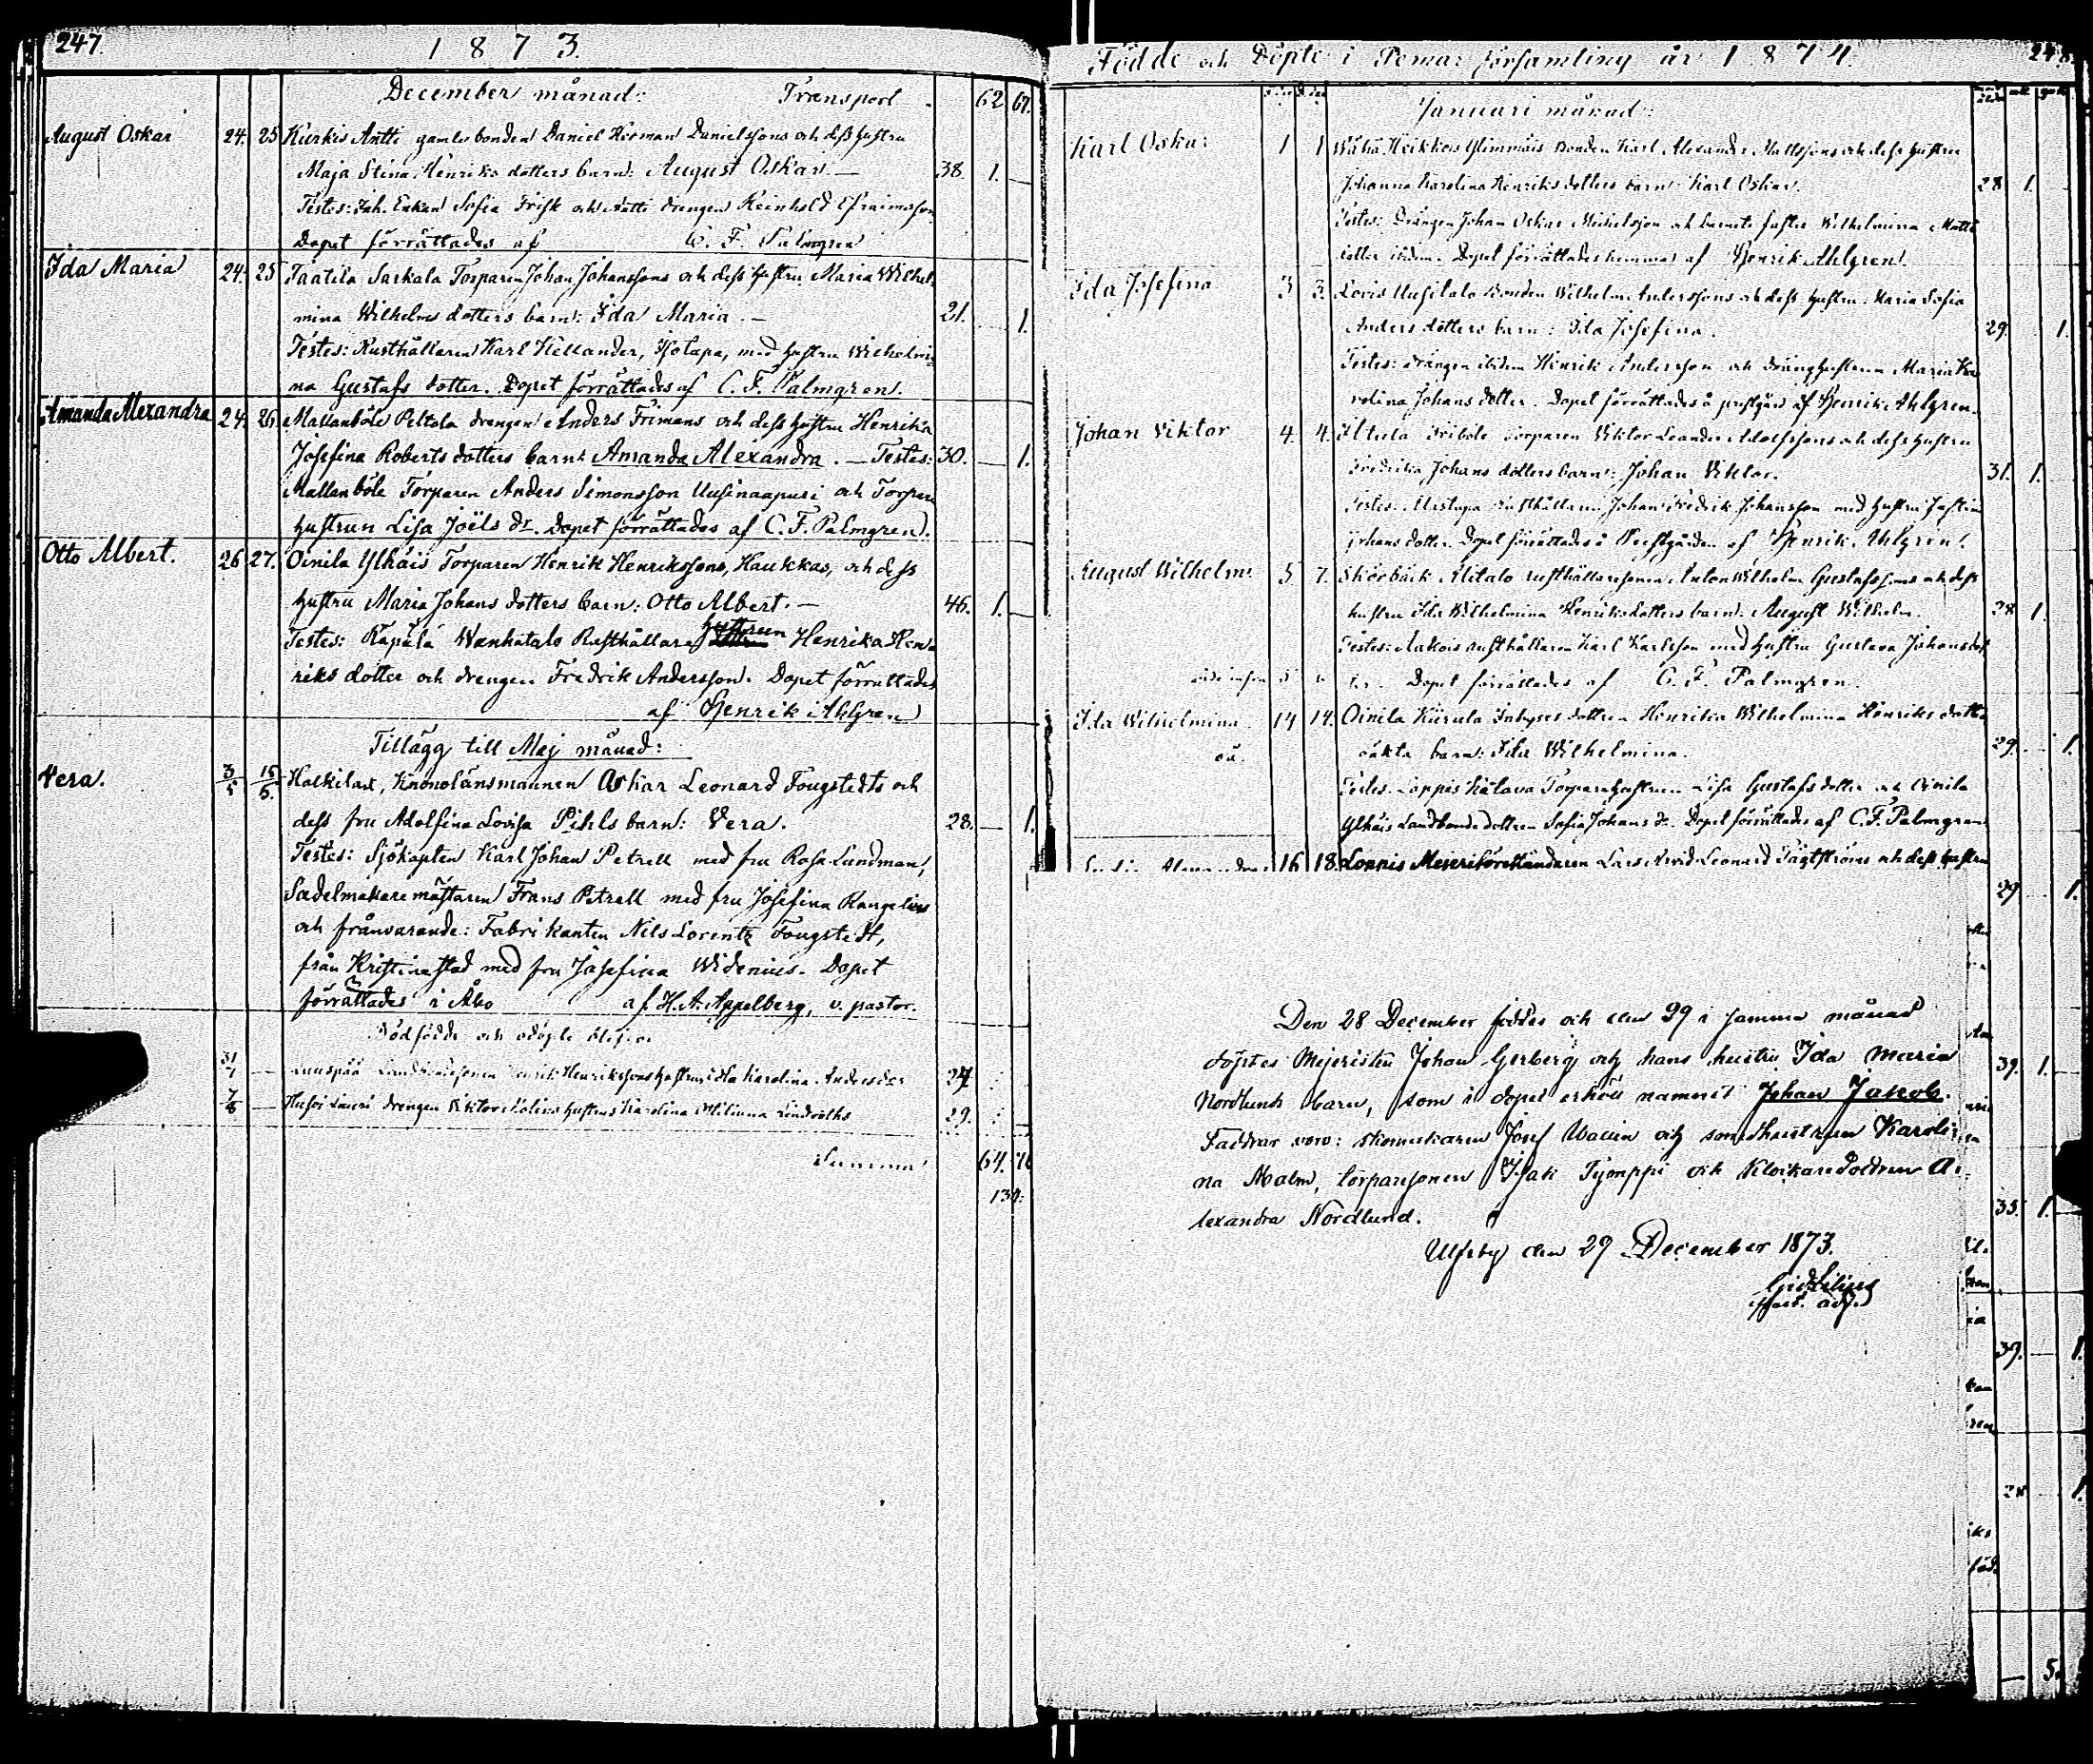 247.
1873.
December månad: Transport 62 67.
August Oskar 24. 25 Kierkis Antti gamle bonden Daniel Herman Danielssons och dess hustru
Maja Stina Henriks dotters barn: August Oskar. — 38. 1. —
Testes: Inh. Enkan Sofia Frisk och Antti drengen Reinhold Efraimsson
Dopet förrättades af C. F. Palmgren
Ida Maria 24. 25 Taatila Sarkala Torparen Johan Johanssons och dess hustru Maria Wilhel
mina Wilhelms dotters barn: Ida Maria. — 21. 1.
Testes: Rusthållaren Karl Hellander, Isotapa, med hustru Wilhelmi
na Gustafs dotter. Dopet förrättades af C. F. Palmgren.
Amanda Alexandra 24. 26. Mallanböle Peltola drengen Anders Frimans och dess hustru Henrika
Josefina Roberts dotters barn: Amanda Alexandra. — Testes: 30. — 1.
Mallanböle Torparen Anders Simonsson Uusinaapuri och Torpare
hustrun Lisa Joëls dr. Dopet förrättades af C. F. Palmgren.
Otto Albert. 26 27. Oinila Ylhäis Torparen Henrik Henrikssons, Haukkas, och dess
hustru Maria Johans dotters barn: Otto Albert. — 46. 1. —
Testes: Rapala Wanhatalo Rusthållare hustrun Henrika Hen
riks dotter och drengen Fredrik Andersson. Dopet förrättades
af Henrik Ahlgren
Tillägg till Maj månad:
Vera. 3/5 15/5. Halkilax, Kronolänsmannen Oskar Leonard Fougstedts och
dess fru Adolfina Lovisa Pihls barn: Vera. 28. — 1.
Testes: Sjökapten Karl Johan Petrell med fru Rosa Lundman,
Sadelmakaremästaren Frans Petrell med fru Josefina Rangelius
och frånvarande: Fabrikanten Nils Lorentz Fougstedt,
från Kristinestad med fru Josefina Widenius. Dopet
förrättades i Åbo af H. A. Appelberg, v. pastor.
Dödfödde och odöpte
31/1 — Henrikssons hustrus Karolina Andersdr 24
7/8 — drengen Viktors hustrus Karolina Lindroths 29.
Summa 64. 70
134.
Födde och Döpte i Pomar församling år 1874. 248
Januari månad:
Karl Oskar 1 1 Wähä Heikkois Ylimmäis Bonden Karl Alexander Mattssons och dess hustru
Johanna Karolina Henriks dotters barn: Karl Oskar. 28 1.
Testes: Drängen Johan Oskar Michelsson och barnets faster Wilhelmina Matts
dotter ibidem. Dopet förrättades hemma af Henrik Ahlgren.
Ida Josefina 3 3. Lovis Uusitalo Bonden Wilhelm Anderssons och dess hustru Maria Sofia
Anders dotters barn: Ida Josefina. 29. 1.
Testes: drängen ibidem Henrik Andersson och dränghustrun Maria Ka
rolina Johans dotter. Dopet förrättades å prestgård af Henrik Ahlgren.
Johan Viktor 4. 4. Torparen Viktor Leander Adolfssons och dess hustru
Fredrika Johans dotters barn: Johan Viktor. 31. 1.
Testes: Rusthållaren Johan Fredrik Johansson med hustru Justina
Johans dotter. Dopet förrättades å Prestgården af Henrik Ahlgren.
August Wilhelm 5 7. Skörbäck Alitalo rusthållaresonen Anton Wilhelm Gustafssons och dess
hustru Ida Wilhelmina Henriks dotters barn: August Wilhelm. 28 1.
Testes: rusthållaren Karl Karlsson med hustru Gustava Johans dot
ter. Dopet förrättades af C. F. Palmgren.
Ida Wilhelmina 14 14. Oinila Kierula Inhyses dottren Henrika Wilhelmina Henriks dotter
oä. oäkta barn: Ida Wilhelmina. 29. 1.
Testes: Loppis Torparehustrun Lisa Gustafs dotter och Oinila
Ylhäis Landbonde dottren Sofia Johans dr. Dopet förrättades af C. F. Palmgren
16 18. Loppis Mejeriföreståndaren Lars Arvid Leonard Tägtströms och dess hustru
29 1.
Den 28 December föddes och den 29 i samma månad
döptes Mejeristen Johan Gerberg och hans hustru Ida Maria
Nordlunds barn, som i dopet erhöll namnet Johan Jakob.
Faddrar voro: skomakaren Josef Wallin och smedhustrun Karoli
na Malm, torparesonen Isak Tyomppi och Klockaredottren A-
lexandra Nordlund.
Ulfsby den 29 December 1873.
Gid. Lilius
past. adj.
39. 1.
35. 1.
39. 1.
28 1.
5.